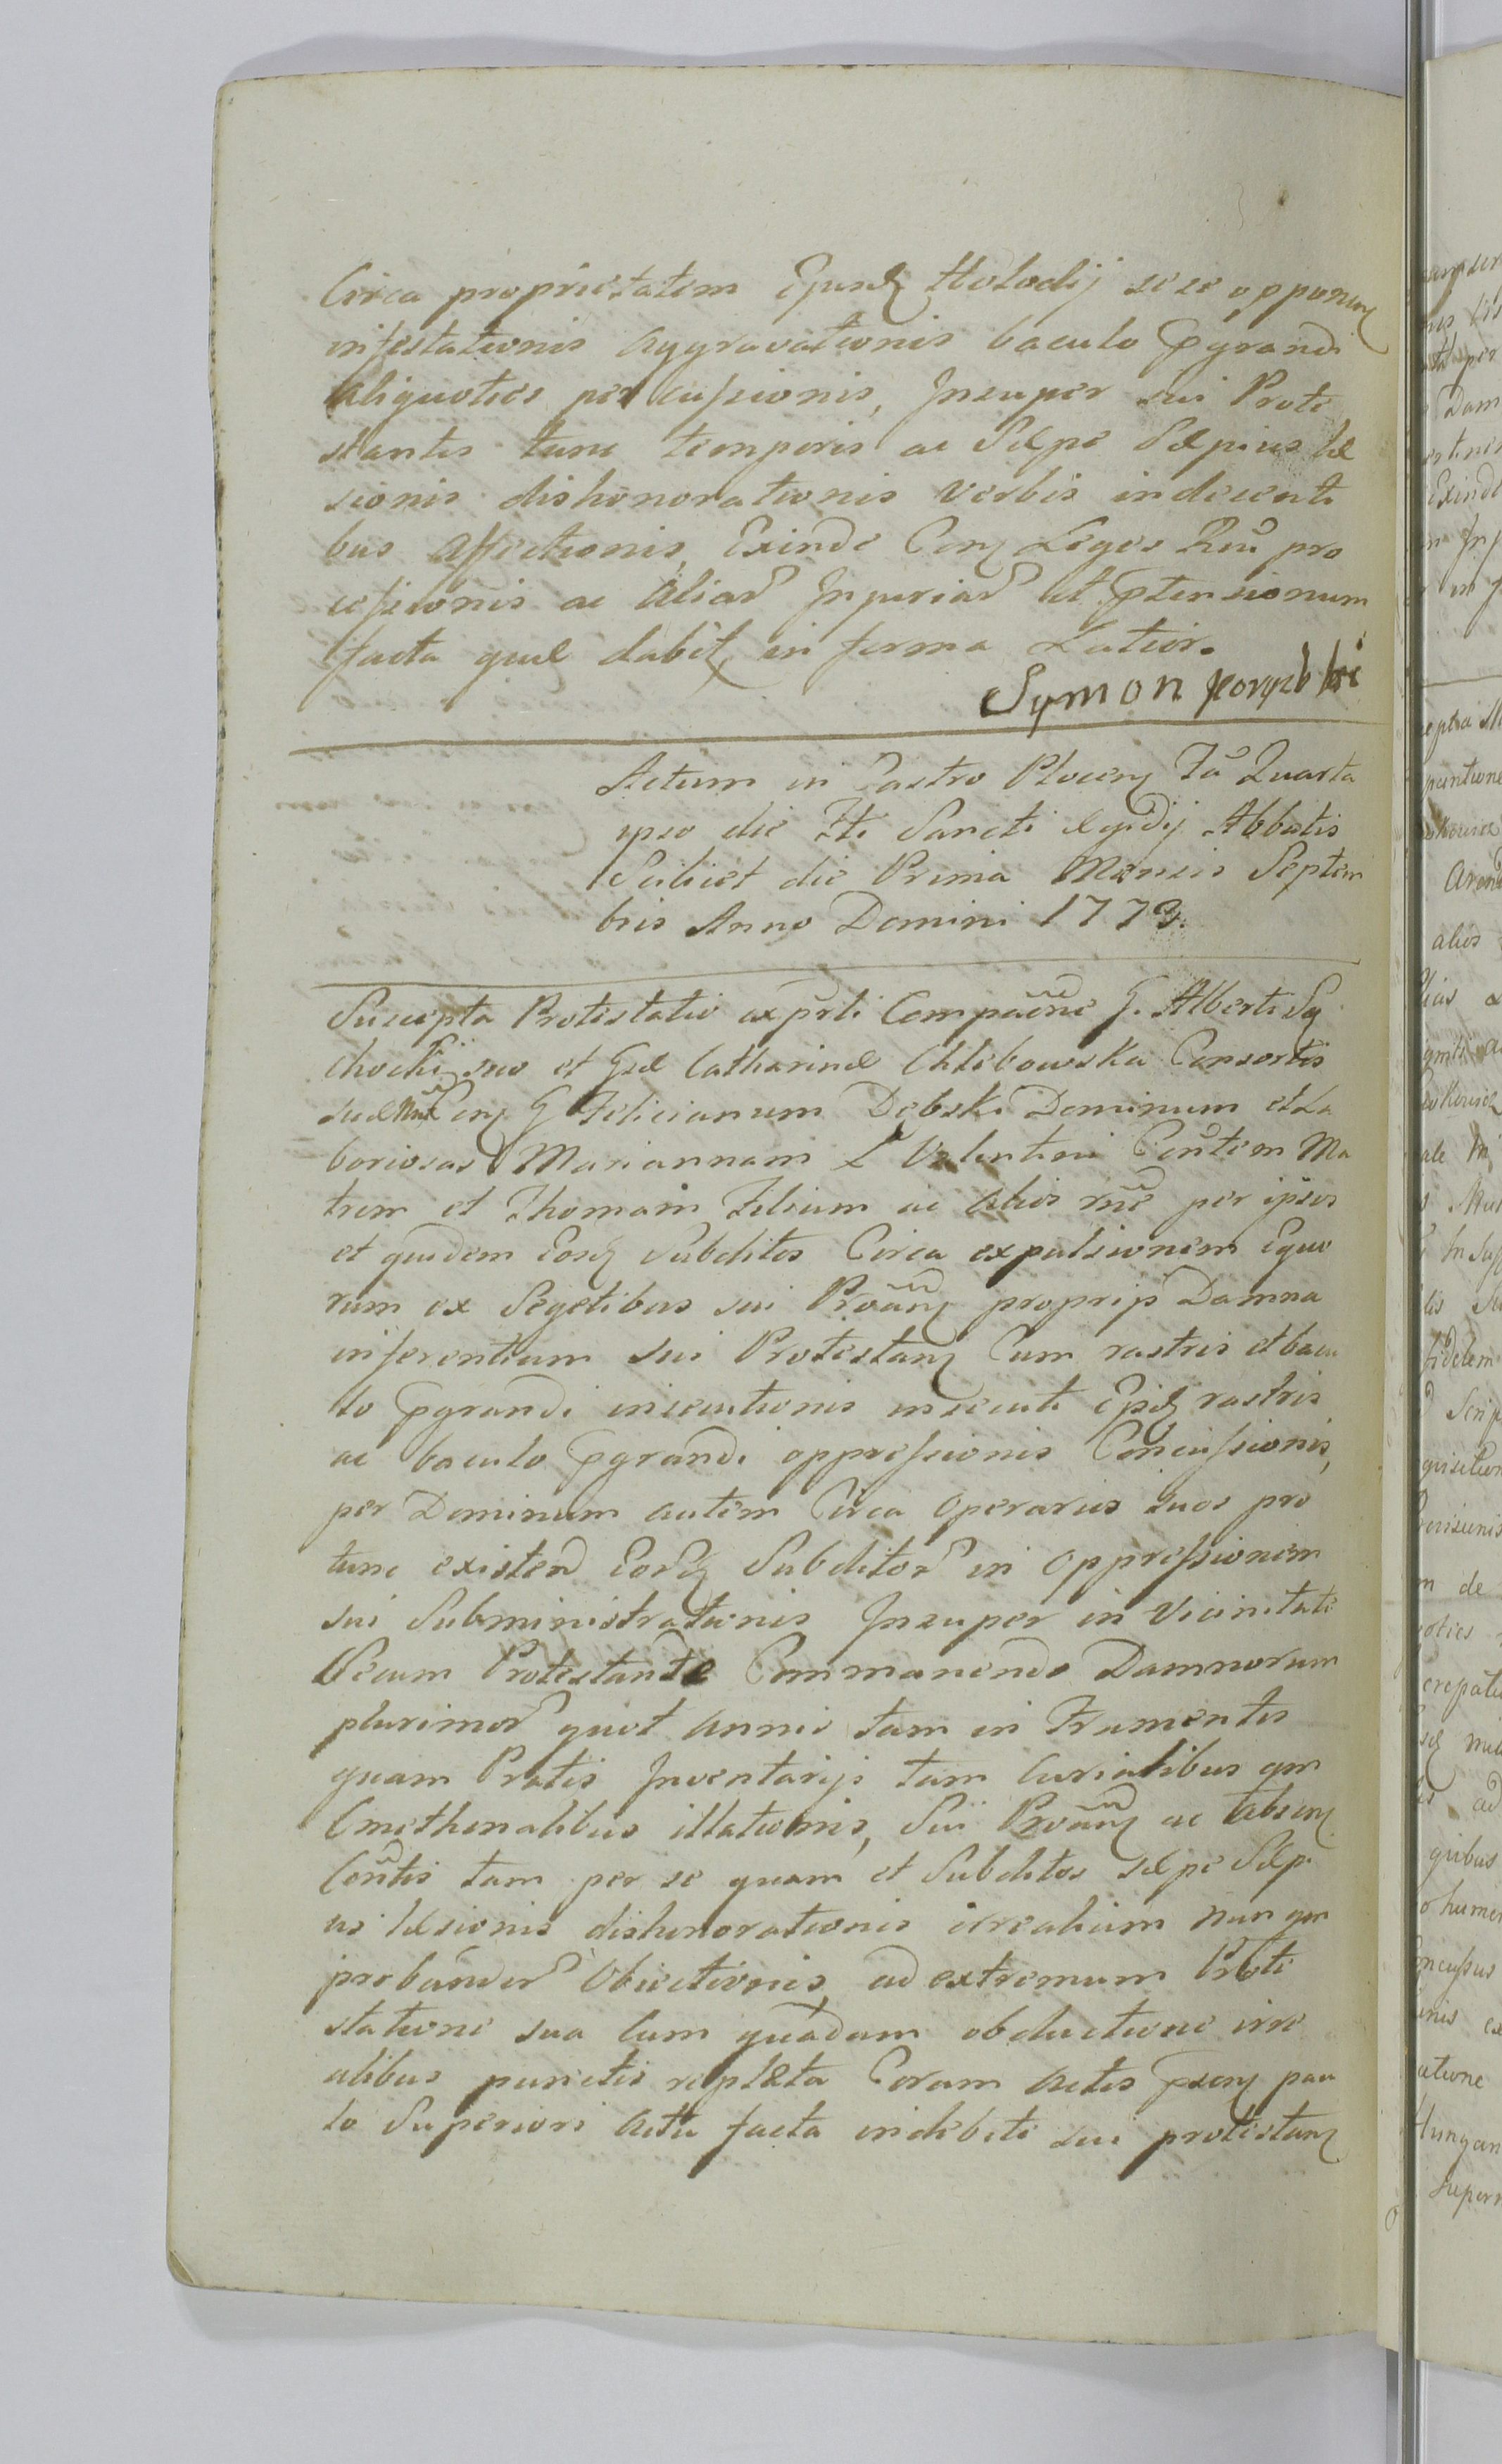 Circa proprietatem Ejusd Holodij sese opponen
infestationis Aggravationis baculo Pgrandi
Aliquoties percussionis, Insuper sui Prote
stantis tunc temporis ac Sæpe Sæpius læ
sionis dishonorationis verbis indecenti
bus Affectionis, Exinde Con Leges Rnī pro
cessionis ac Aliar Injuriar et Ptensionum
facta quæ dabit in forma Latior.
Symon porzÿb ski
Actum in Castro Plocen Fâ Quarta
ipso die Fti Sancti Ægidij Abbatis
Scilicet die Prima Mensis Septem
bris Anno Domini 1773.
Suscepta Protestatio ex prti Compacne G. Alberti Sy
chocki suo et Gsæ Catharinæ Chlebowska Consortis
suæ Nnē Con G Felicianum Dębski Dominum et La
boriosas Mariannam L Valentini Contem Ma
trem et Thomam Filium ac Alios rnē per ipsos
et quidem Eosd Subditos Circa expulsionem Equo
rum ex Segetibus sui Proan proprijs Damna
inferentium sui Protestan Cum rastris et bacu
lo Pgrandi insecutionis insecuti Ejsd rastris
ac baculo Pgrandi oppressionis Concussionis,
per Dominum autem Circa Operarios suos pro
tunc existen Eord Subditor in Oppressionem
sui Subministrationis Insuper in Vicinitate
Secum Protestante Commanendo Damnorum
plurimor quot annis tam in Frumentis
quam Pratis Inventarijs tam Curialibus qm
Cmethonalibus illationis, Sui Proan ac Absen
Contis tam per se quam et Subditos sæpe Sæpi
us læsionis dishonorationis irrealium nunqm
probandor Obiectionis, ad extremum Prote
statione sua Cum quadam obductione irre
alibus punctis repleta Coram Actis Psen pau
lo Superiori Actu facta indebite sui protestan